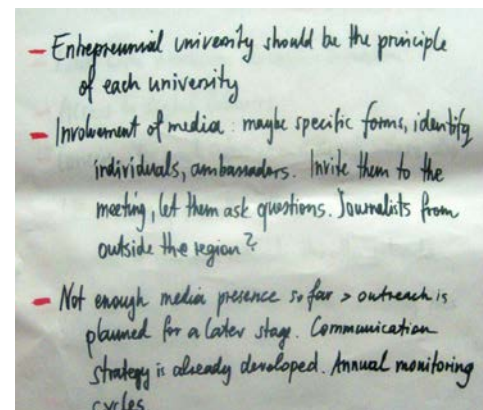 - Entrepreunial university should be the principle
of each university
- Involvement of media: maybe specific forms, identify
individuals, ambassadors. Invite them to the
meeting, let them ask questions. Journalists from
outside the region?
- Not enough media presence so far > outreach is
planned for a later stage. Communication
strategy is already developed. Annual monitoring
cycles